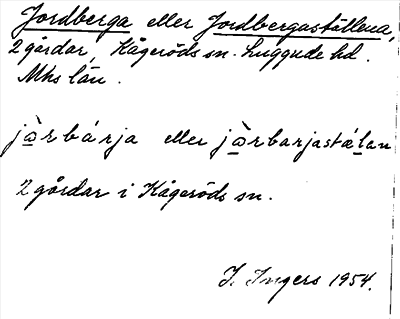 Jordberga eller Jordbergaställena,
2 gårdar, Kågeröds sn. Luggude hd.
Mhs län.
jàrbárja eller jàrbarjastálan
2 gårdar i Kågeröds sn.
I. Ingers 1954.